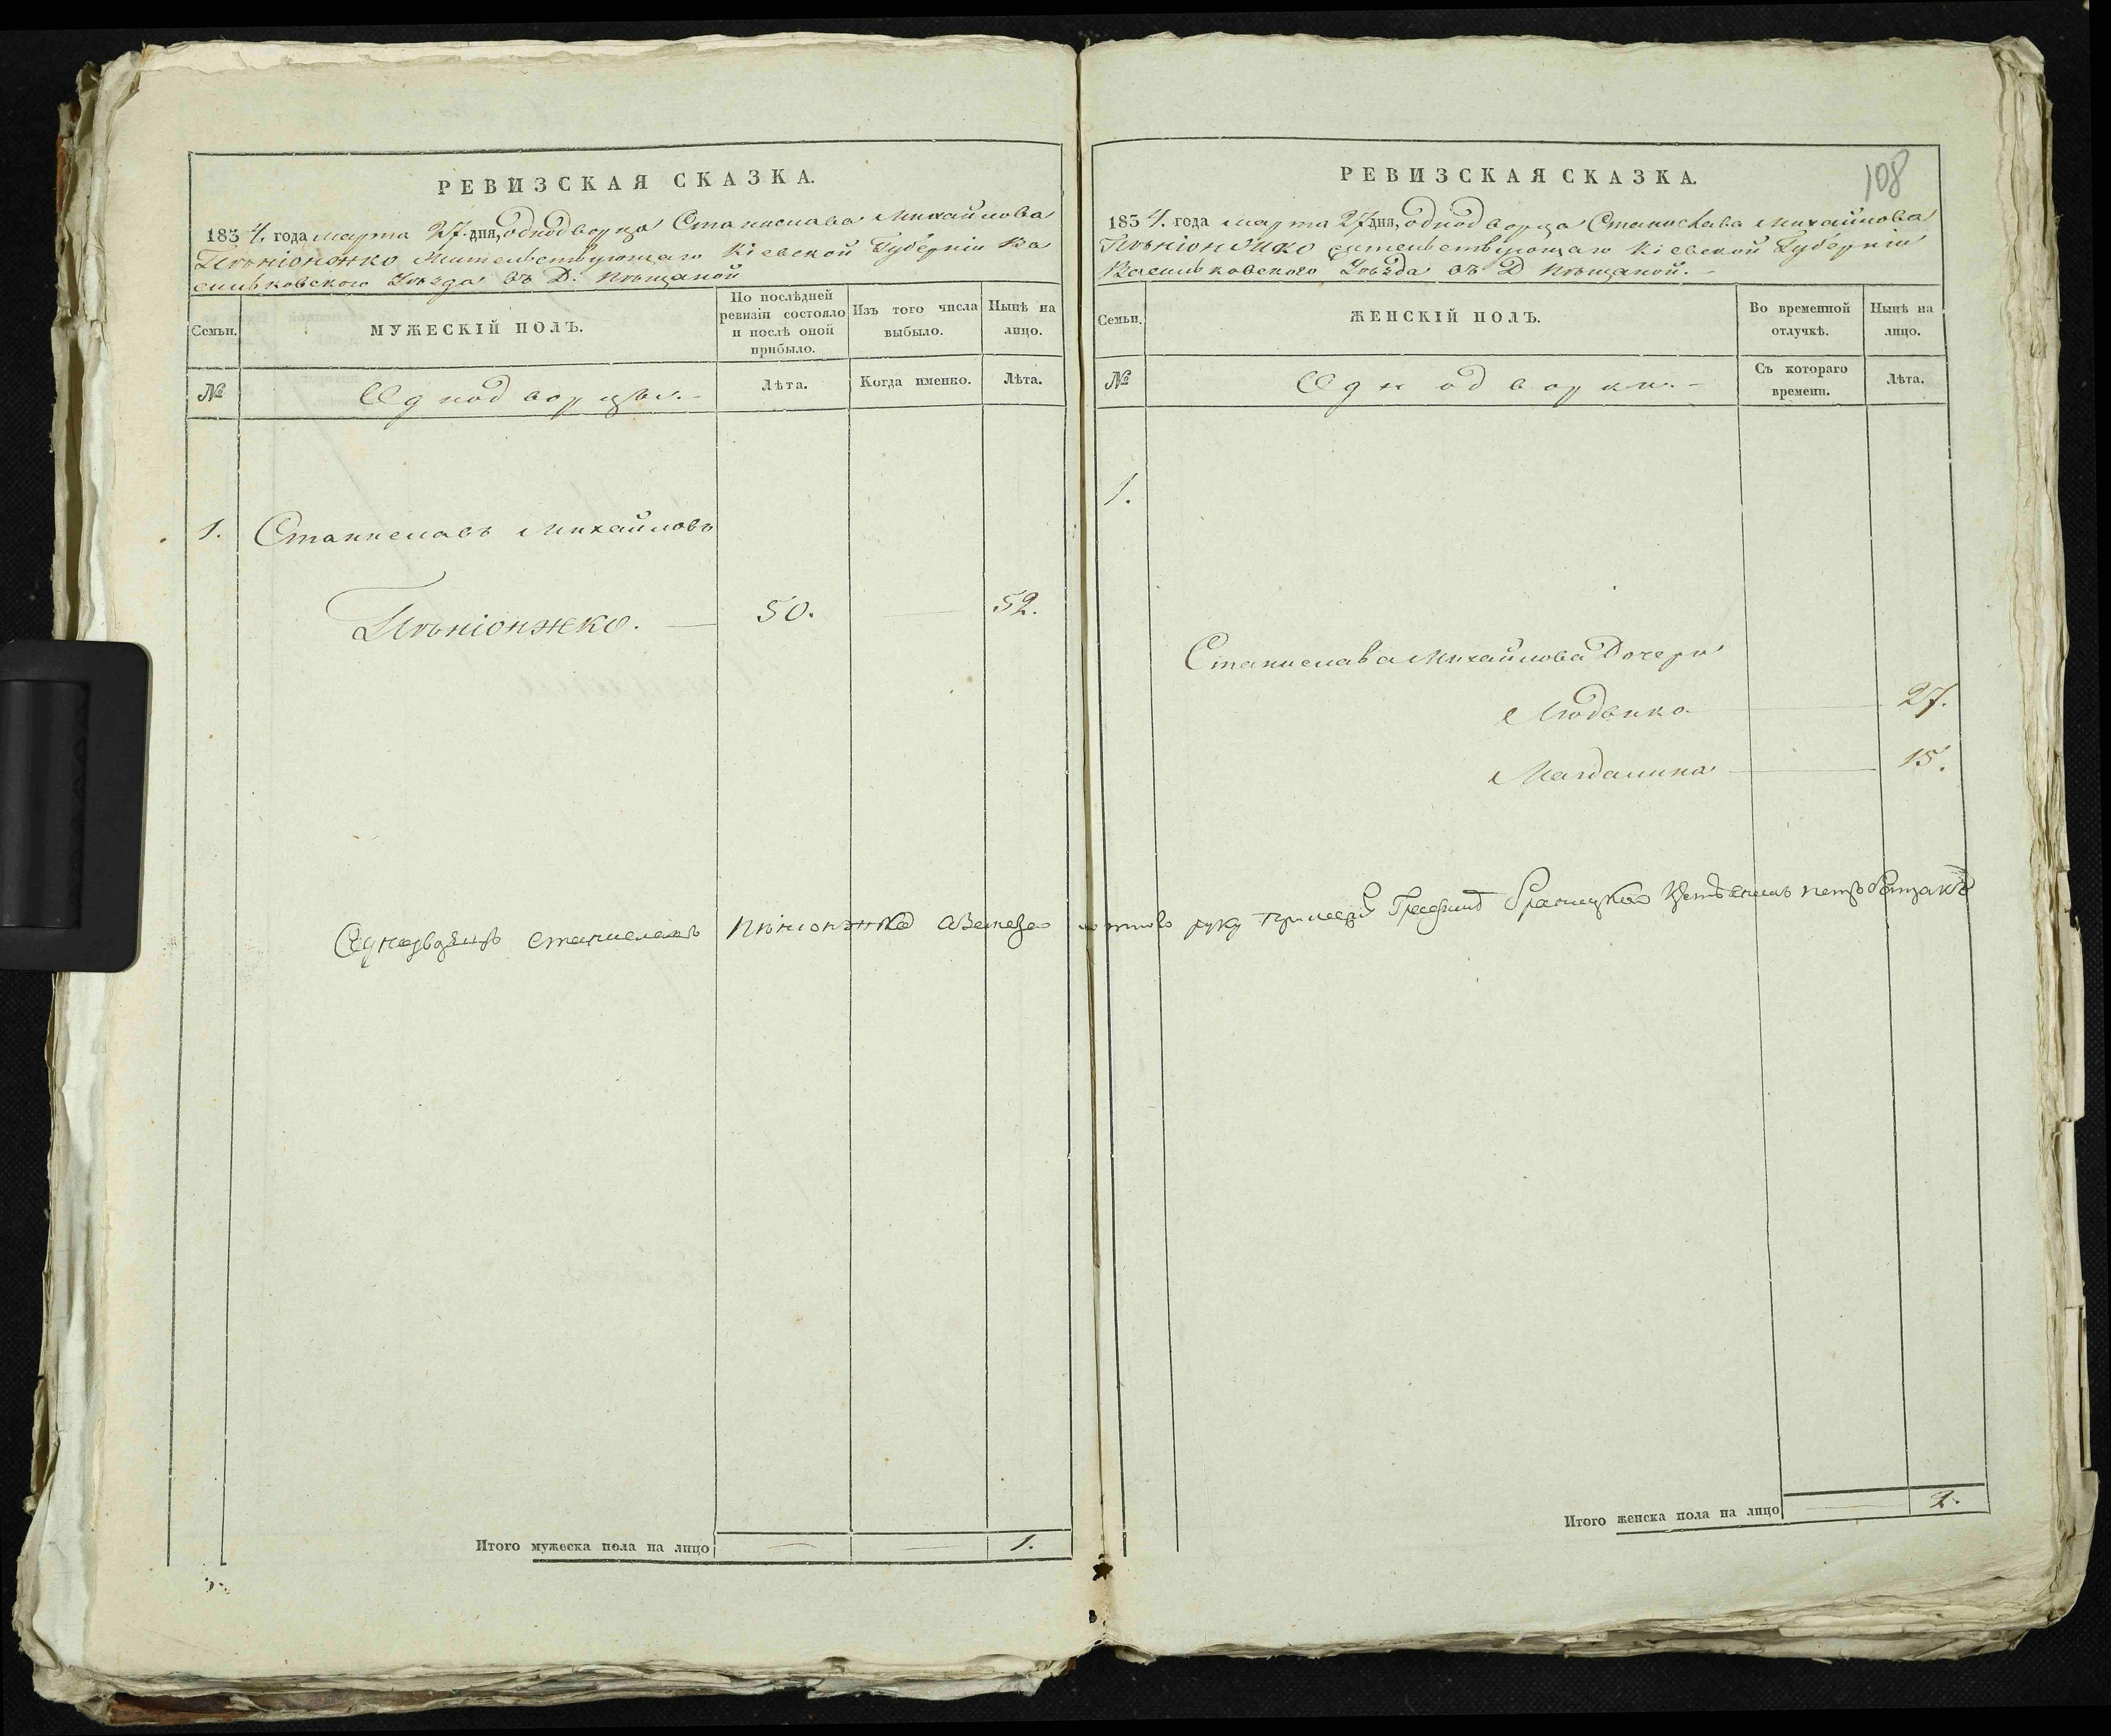 РЕВИЗСКАЯ СКАЗКА.
1834. года Марта 27. дня, однодворца Станислава Михайлова
Пѣніонжко Жительствующаго Кіевской Губерніи Ва
сильковского Уѣзда въ Д. Пѣщаной
Семьи.
МУЖЕСКІЙ ПОЛЪ.
По послѣдней ревизіи состояло и послѣ оной прибыло.
Изъ того числа выбыло.
Нынѣ на лицо.
№
Однодворцы.
Лѣта.
Когда именно.
Лѣта.
1. Станиславъ Михайловъ
Пѣніонжко. 50. 52.
Однодворецъ Станиславъ Пѣнионжко а вместо его руку
Итого мужеска пола на лицо 1.
108
РЕВИЗСКАЯ СКАЗКА.
1834. года Марта 27 дня, однодворца Станислава Михайлова
Пѣніонжко жительствующаго Кіевской Губерніи
Васильковского Уѣзда въ Д Пѣщаной.
Семьи.
ЖЕНСКІЙ ПОЛЪ.
Во временной отлучкѣ.
Нынѣ на лицо.
№
Однодворки.
Съ котораго времени.
Лѣта.
1.
Станислава Михайлова Дочери
Людвика 27.
Магдалина 15.
Итого женска пола на лицо 2.